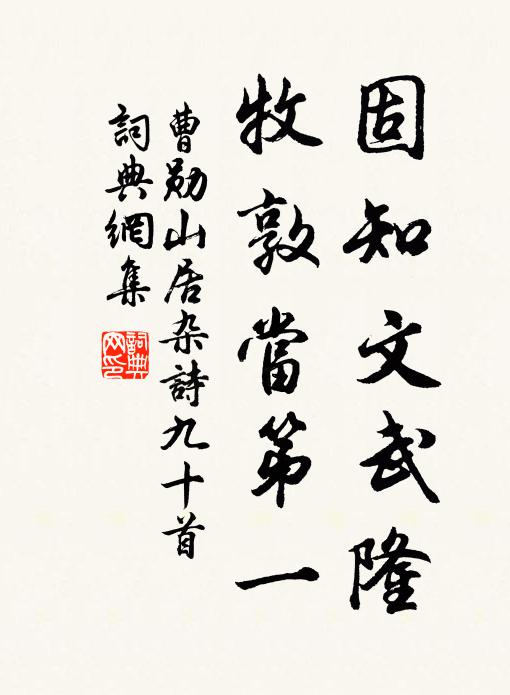 固知文武隆
牧敦當第一
曹勋山居杂詩九十首
詞典網集
詞典網印